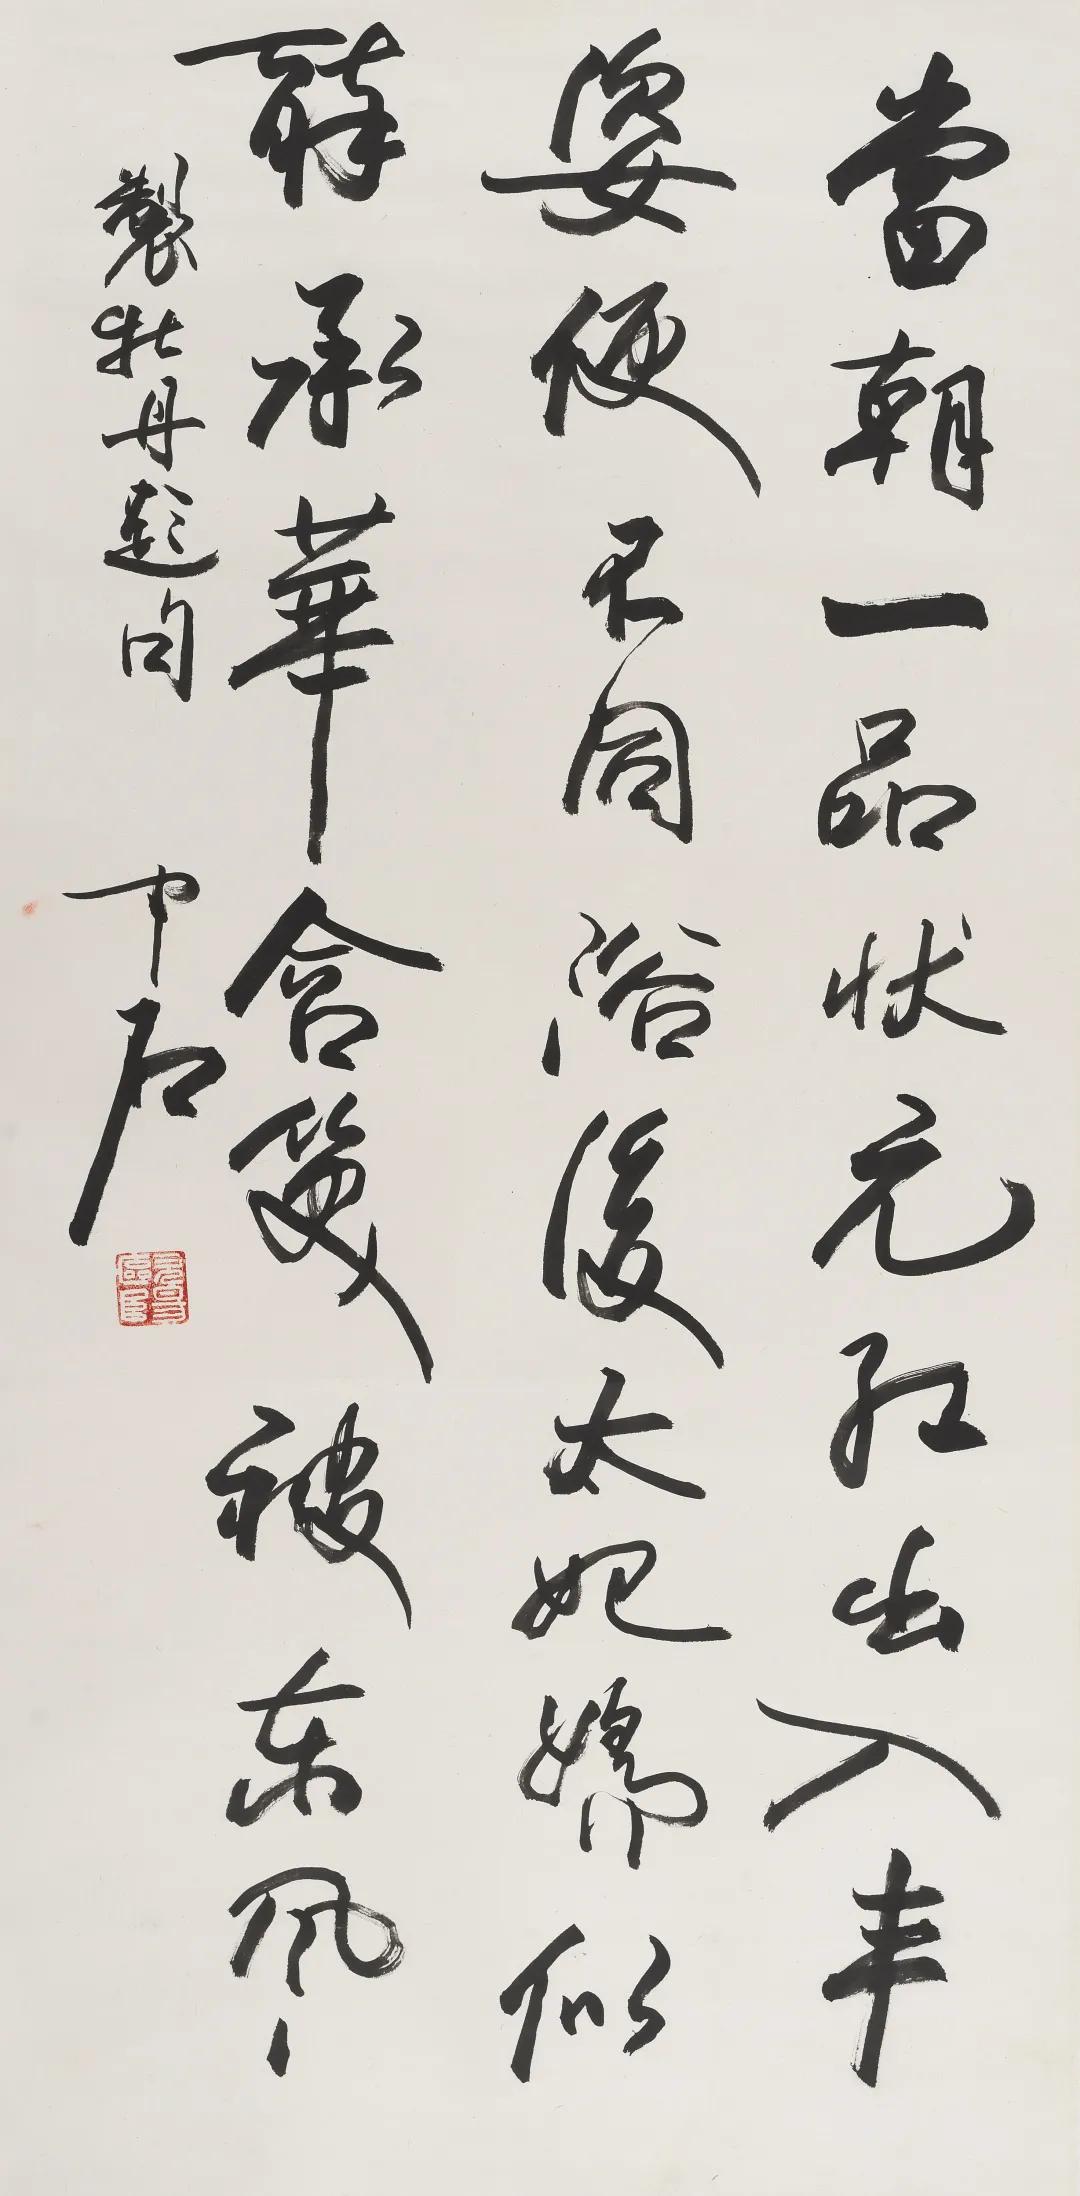 當朝一品状元红出入丰
姿便不同浴後太妃嬌似
醉承華含笑被東風
製牡丹題句
中石